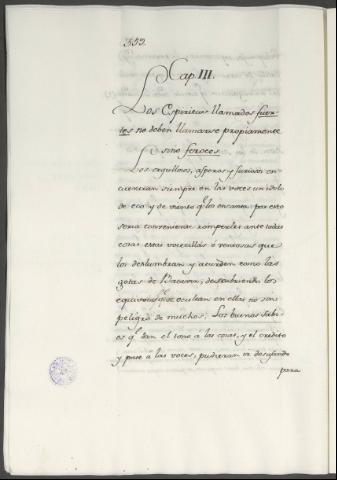 353.
Cap. III.
Los Espiritus llamados fuer-
tes no deben llamarse propiamente
sino feroces.
Los orgullosos, asperos y furiosos en-
cuentran siempre en las voces un idolo
de eco y de viento q.e los encanta: por esto
seria conveniente romperles ante todas
cosas estas vocecillas ó ventosas que
los deslumbran y aturden como las
gotas de descubriendo los
equivocos q.e se ocultan en ellas no sin
peligro de muchos: Los buenos sabi-
os q.e dan el tono á las cosas, y el credito
y pase á las voces, pudieran ir
para